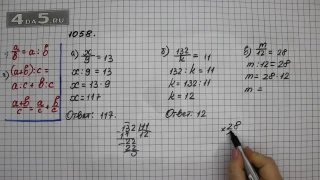 4DA5.RU
1058.
a/b = a : b
(a+b):c =
a:c + b:c
a+b/c = a/c + b/c
а) x/9 = 13
x : 9 = 13
x = 13 · 9
x = 117
Ответ: 117.
б) 132/k = 11
132 : k = 11
k = 132 : 11
k = 12
Ответ: 12
132 | 11
11 | 12
22
22
в) m/12 = 28
m : 12 = 28
m = 28 · 12
m =
× 28